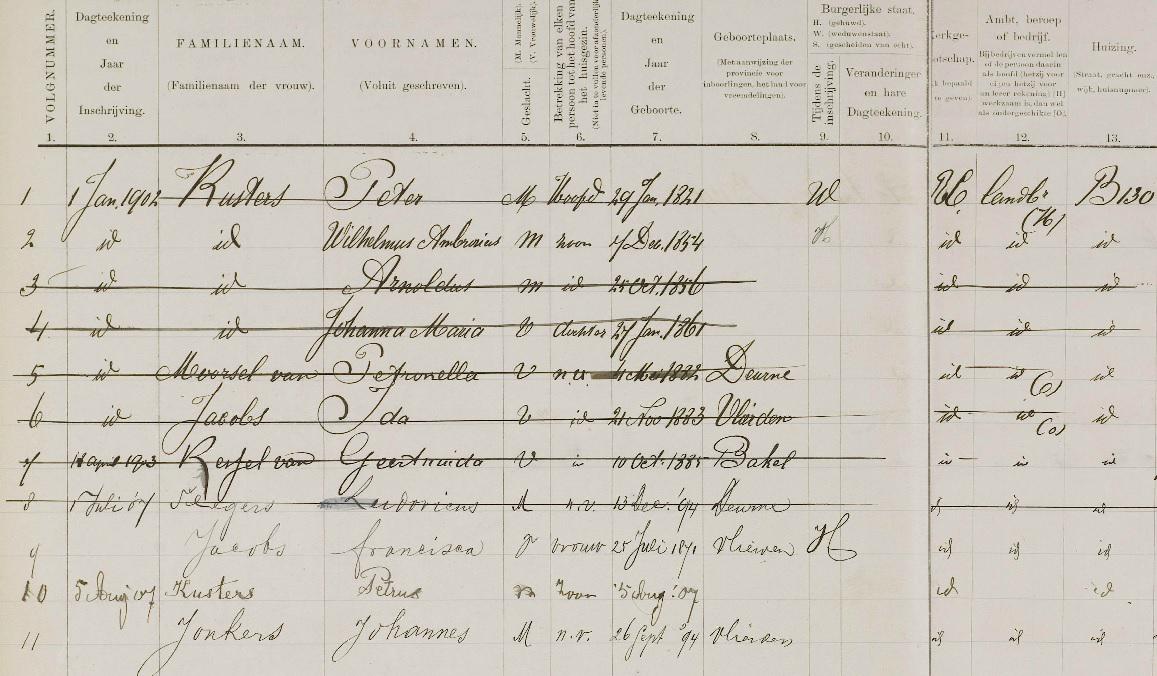 VOLGNUMMER. Dagteekening en Jaar der Inschrijving. FAMILIENAAM. (Familienaam der vrouw). VOORNAMEN. (Voluit geschreven). Geslacht. (M. Mannelijk). (V. Vrouwelijk). Betrekking van elken persoon tot het hoofd van het huisgezin. Dagteekening en Jaar der Geboorte. Geboorteplaats. (Met aanwijzing der provincie voor inboorlingen, het land voor vreemdelingen). Burgerlijke staat. H. (gehuwd). W. (weduwenstaat). S. (gescheiden van echt). Tijdens de inschrijving. Veranderingen en hare Dagteekening. Ambt, beroep of bedrijf. Huizing.
1. 2. 3. 4. 5. 6. 7. 8. 9. 10. 11. 12. 13.
1 1 Jan. 1902 Kusters Peter M Hoofd 29 Jan. 1821 W landbr (H) B 130
2 id id Wilhelmus Ambrosius m zoon 7 Dec. 1854 H. id id id
3 id id Arnoldus m id 25 Oct. 1856 id id id
4 id id Johanna Maria V dochter 27 Jan. 1861 id id id
5 id Moorsel van Petronella V 1882 Deurne id id (O) id
6 id Jacobs Ida V id 21 Nov 1883 Vlierden id id (O) id
7 Kessel van Geertruida V 10 Oct. 1885 Bakel id
8 1 Juli 07 Ludovicus M n.v. 13 Dec. '94 Deurne id id id
9 Jacobs francisca vrouw 25 Juli 1871 Vlierden H id id id
10 5 Aug 07 Kusters Petrus m zoon 5 Aug '07 id id
11 Jonkers Johannes M n.v. 26 Sept '94 Vlierden id id id